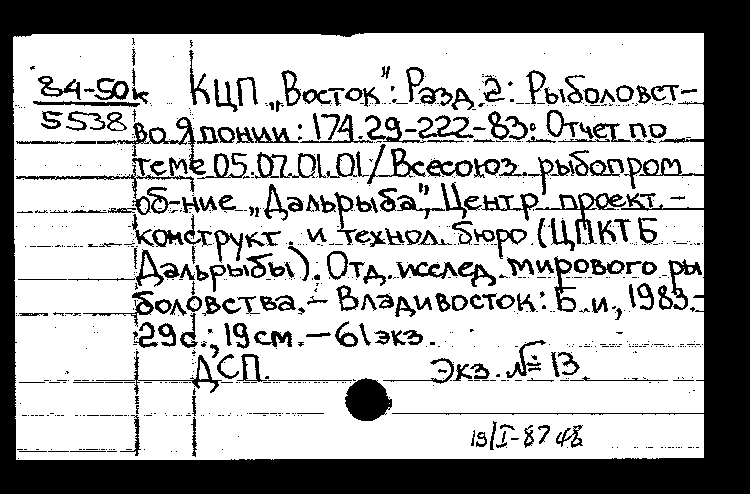 84-50к КЦП „Восток": Разд. 2: Рыболовст-
5538 во Японии: 174.29-222-83: Отчет по
теме 05.07.01.01/Всесоюз. рыбопром
об-ние „Дальрыба", Центр. проект.-
конструкт. и технол. бюро (ЦПКТБ
Дальрыбы). Отд. исслед. мирового ры
боловства.- Владивосток: Б.и., 1983.-
29с.; 19см. - 61экз.
ДСП. Экз. № 13.